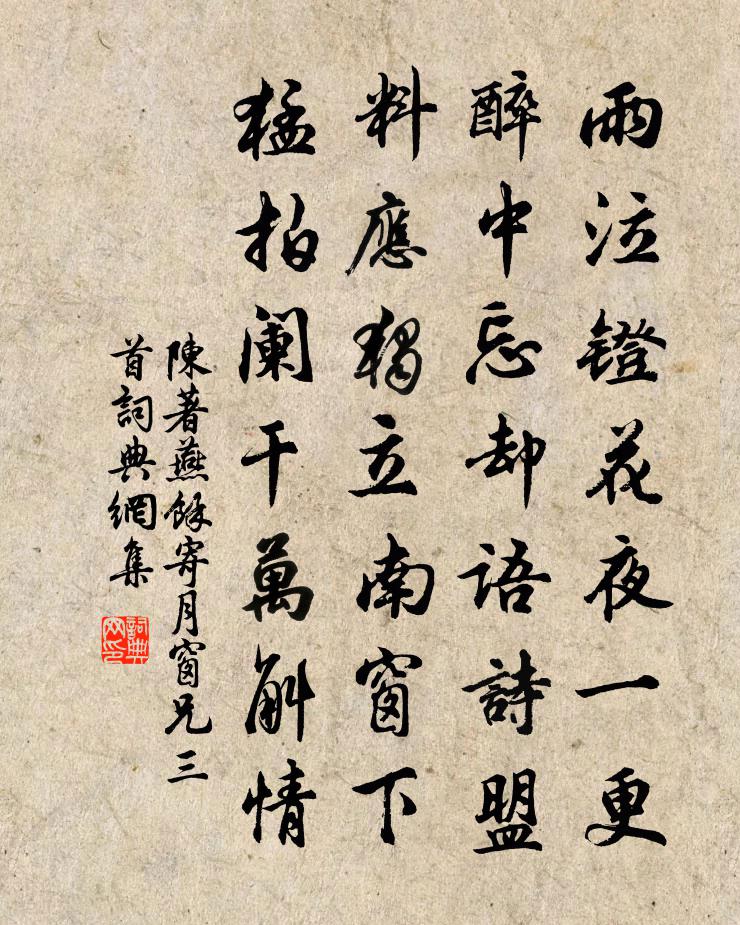 雨泣鐙花夜一更
醉中忘却語詩盟
料應獨立南窗下
猛拍闌干萬斛情
陳著燕餘寄月窗兄三
首詞典網集
詞典
网印